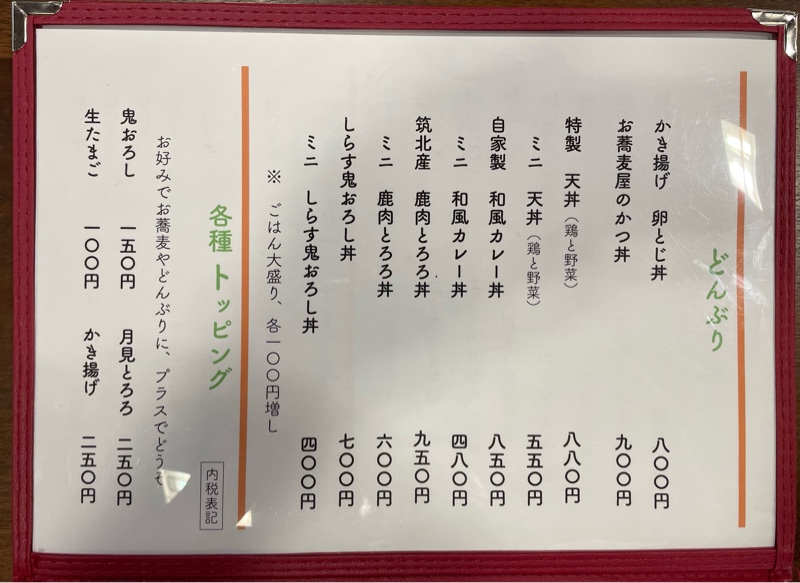 どんぶり
かき揚げ 卵とじ丼 八〇〇円
お蕎麦屋のかつ丼 九〇〇円
特製 天丼（鶏と野菜） 八八〇円
ミニ 天丼（鶏と野菜） 五五〇円
自家製 和風カレー丼 八五〇円
ミニ 和風カレー丼 四八〇円
筑北産 鹿肉とろろ丼 九五〇円
ミニ 鹿肉とろろ丼 六〇〇円
しらす鬼おろし丼 七〇〇円
ミニ しらす鬼おろし丼 四〇〇円
※ ごはん大盛り、各一〇〇円増し
各種 トッピング
内税表記
お好みでお蕎麦やどんぶりに、プラスでどうぞ
鬼おろし 一五〇円 月見とろろ 二五〇円
生たまご 一〇〇円 かき揚げ 二五〇円